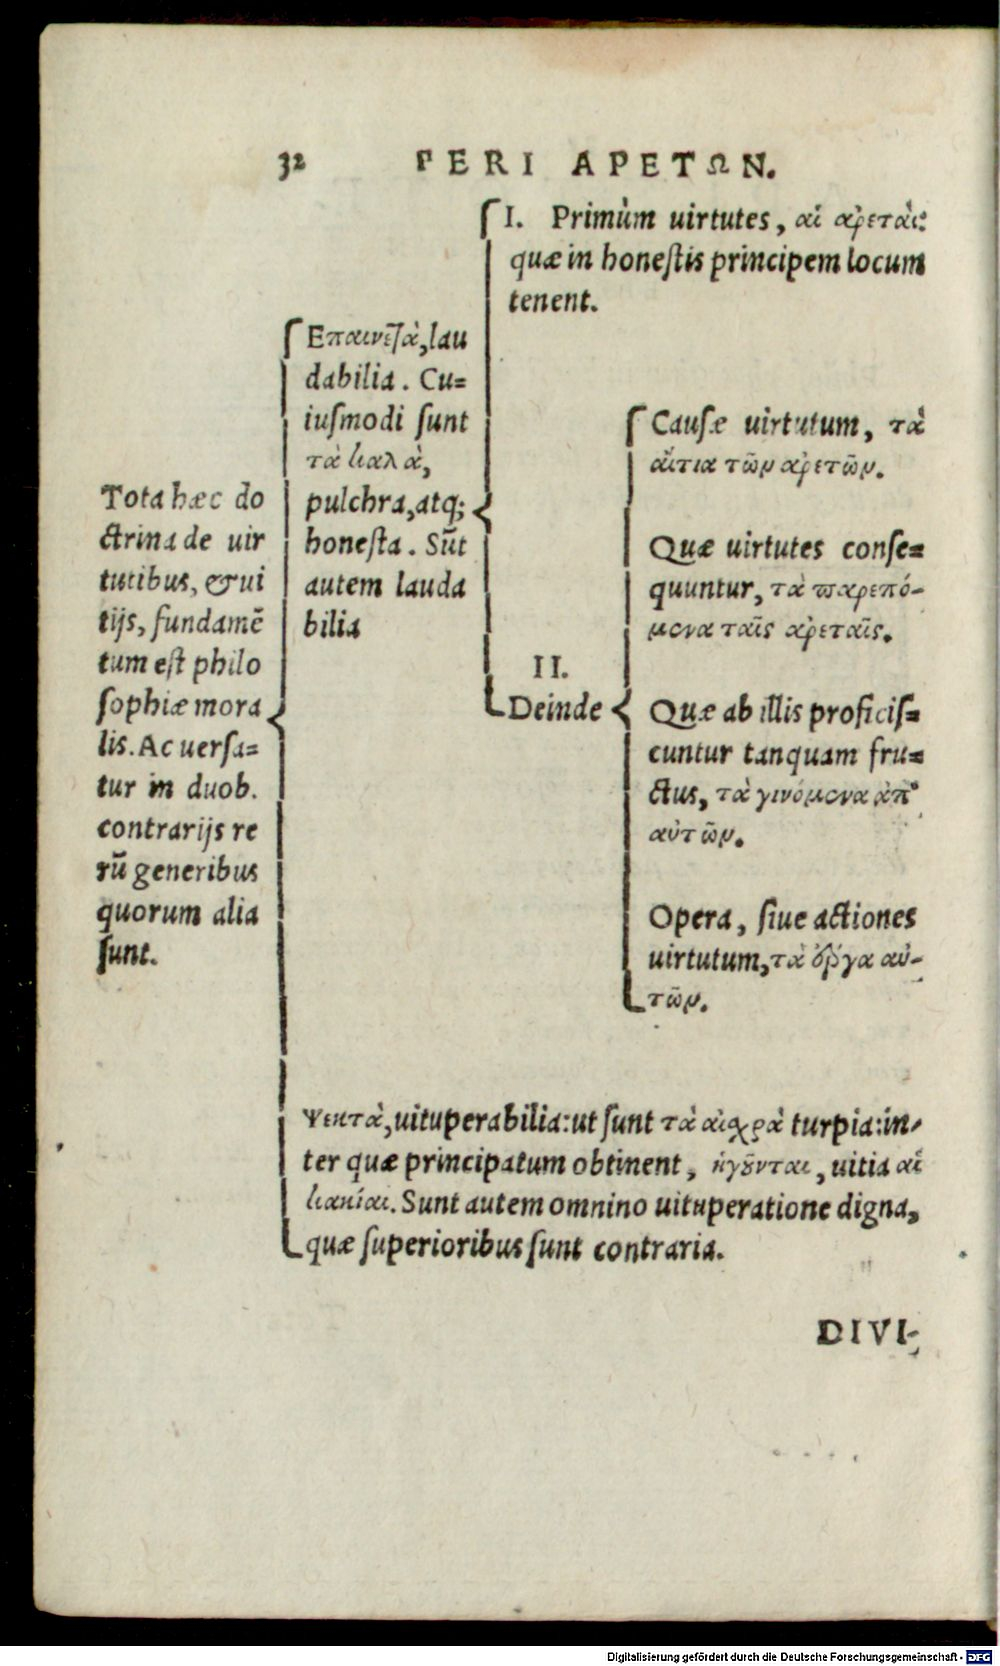 32 PERI ΑΡΕΤΩΝ.
Tota hæc do
ctrina de uir
tutibus, & ui
tijs, fundamē
tum est philo
sophiæ mora
lis. Ac uersa=
tur in duob.
contrarijs re
rū generibus
quorum alia
sunt.
Επαινετὰ, lau
dabilia. Cu=
iusmodi sunt
τὰ καλὰ,
pulchra, atq;
honesta. Sūt
autem lauda
bilia
I. Primùm uirtutes, αἱ ἀρεταὶ:
quæ in honestis principem locum
tenent.
II.
Deinde
Causæ uirtutum, τὰ
αἴτια τῶν ἀρετῶν.
Quæ uirtutes conse=
quuntur, τὰ παρεπό-
μενα ταῖς ἀρεταῖς.
Quæ ab illis proficis=
cuntur tanquam fru=
ctus, τὰ γινόμενα ἀπ᾽
αὐτῶν.
Opera, siue actiones
uirtutum, τὰ ἔργα αὐ-
τῶν.
Ψεκτὰ, uituperabilia: ut sunt τὰ αἰσχρὰ turpia: in-
ter quæ principatum obtinent, ἡγοῦνται, uitia αἱ
κακίαι. Sunt autem omnino uituperatione digna,
quæ superioribus sunt contraria.
DIVI-
Digitalisierung gefördert durch die Deutsche Forschungsgemeinschaft - DFG